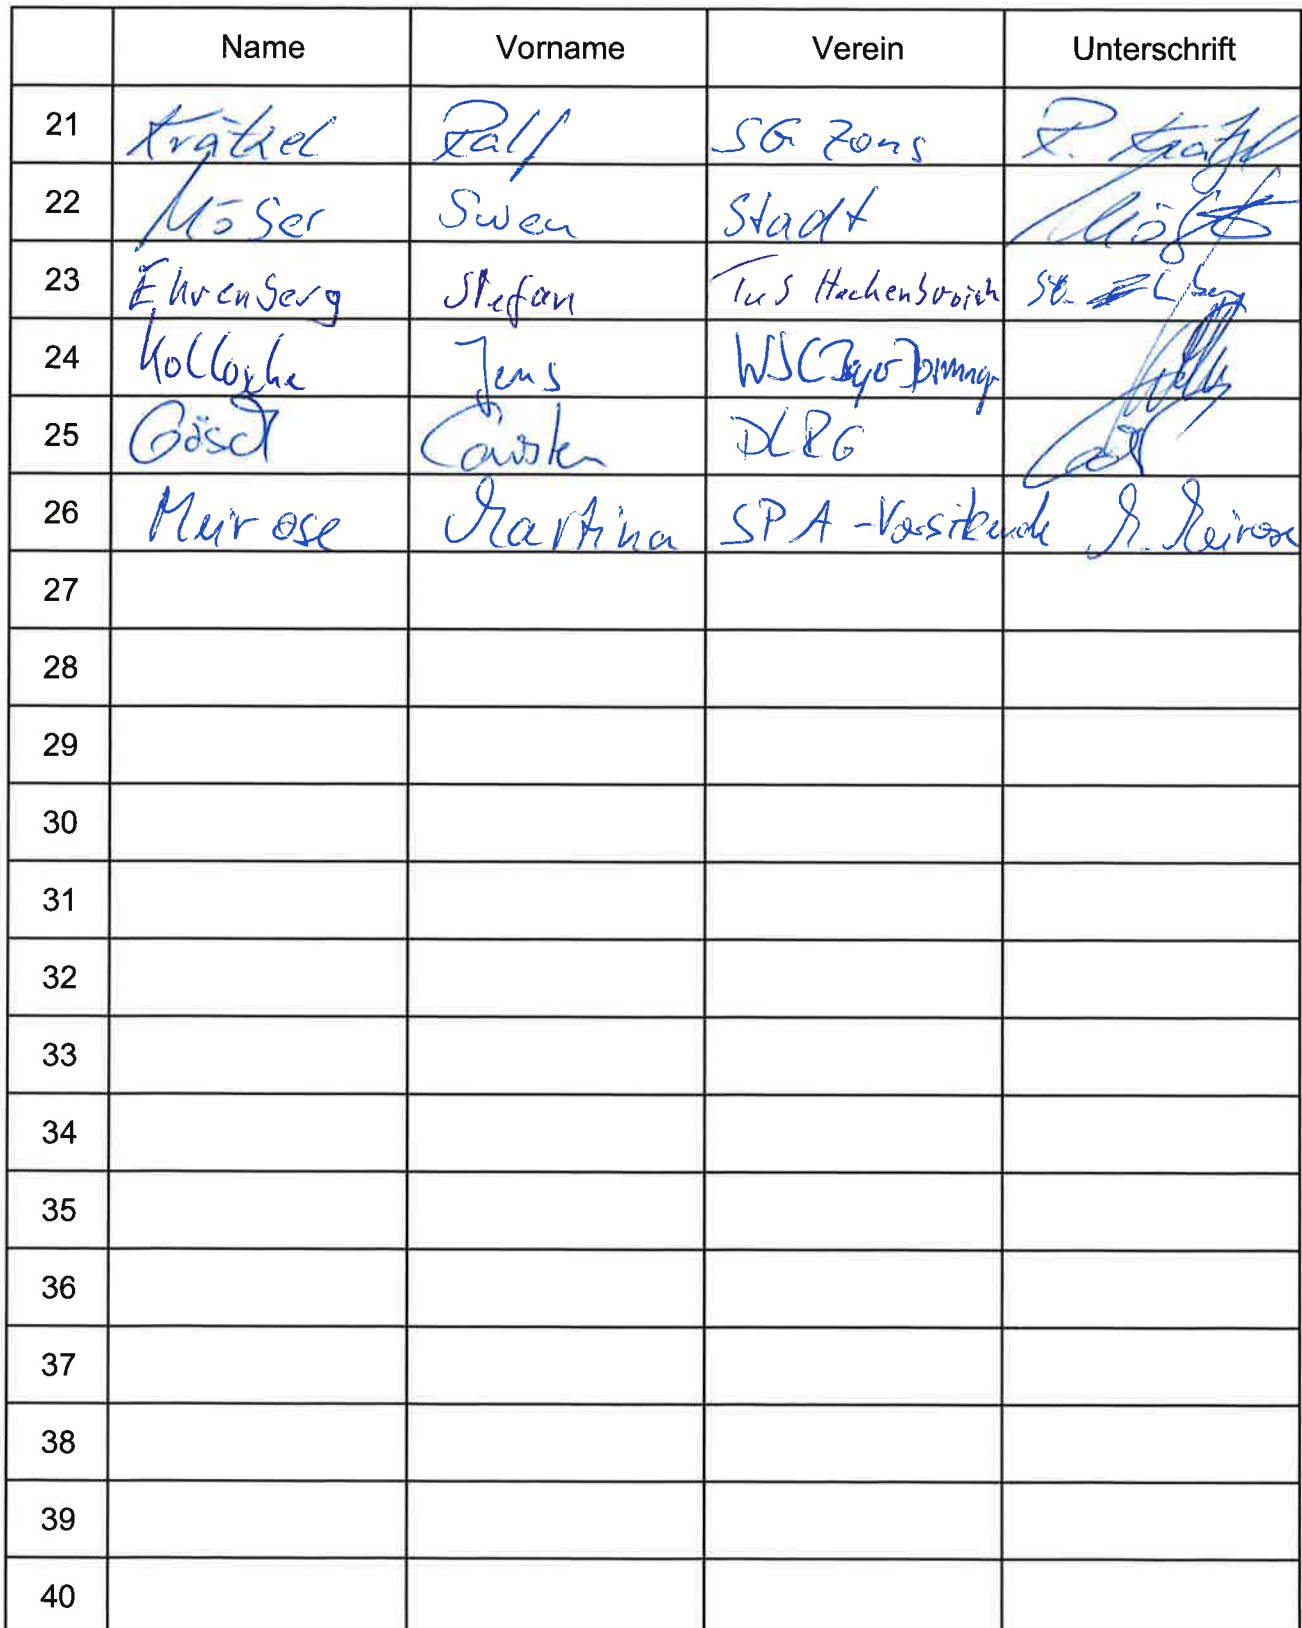 Name Vorname Verein Unterschrift
21 Krätzel Ralf SG Zons R. Krätzel
22 Möser Swen Stadt
23 Ehrenberg Stefan TuS Hackenbroich St.
24 Jens WSC Bayer Dormagen
25 Gösch Carsten DLRG
26 Meirose Martina SPA-Vorsitzende M. Meirose
27
28
29
30
31
32
33
34
35
36
37
38
39
40